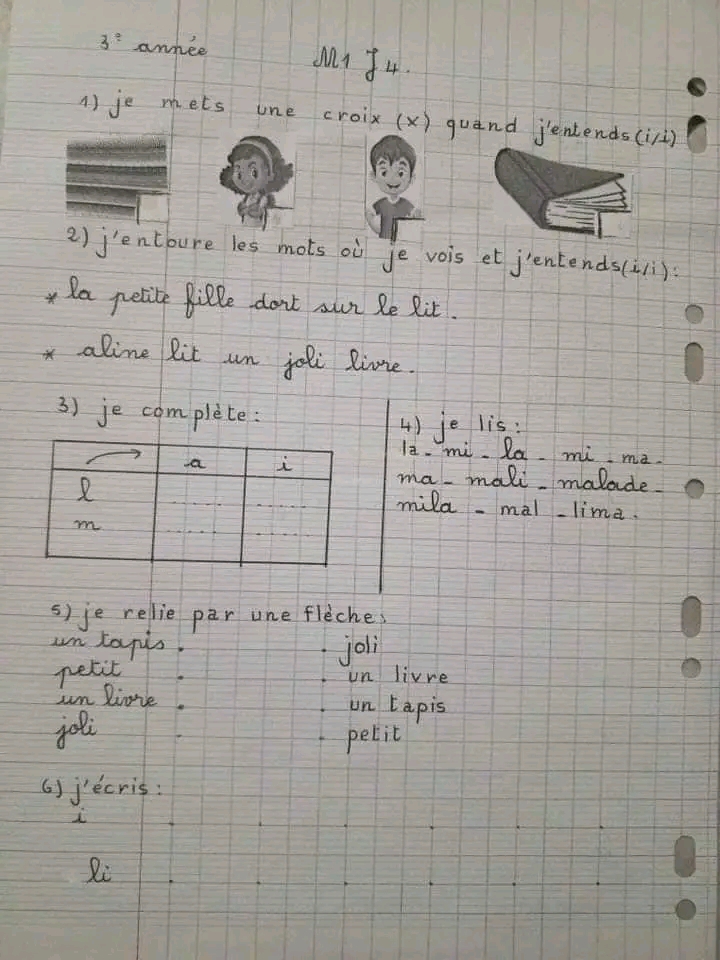 3° année M1 J4.
1) je mets une croix (x) quand j'entends (i/i)
2) j'entoure les mots où je vois et j'entends (i/i) :
* la petite fille dort sur le lit.
* aline lit un joli livre.
3) je complète :
a i
l ...... ......
m ...... ......
4) je lis :
la - mi - la - mi - ma -
ma - mali - malade -
mila - mal - lima.
5) je relie par une flèche :
un tapis . . joli
petit . . un livre
un livre . . un tapis
joli . . petit
6) j'écris :
i . . . . . .
li . . . . . .